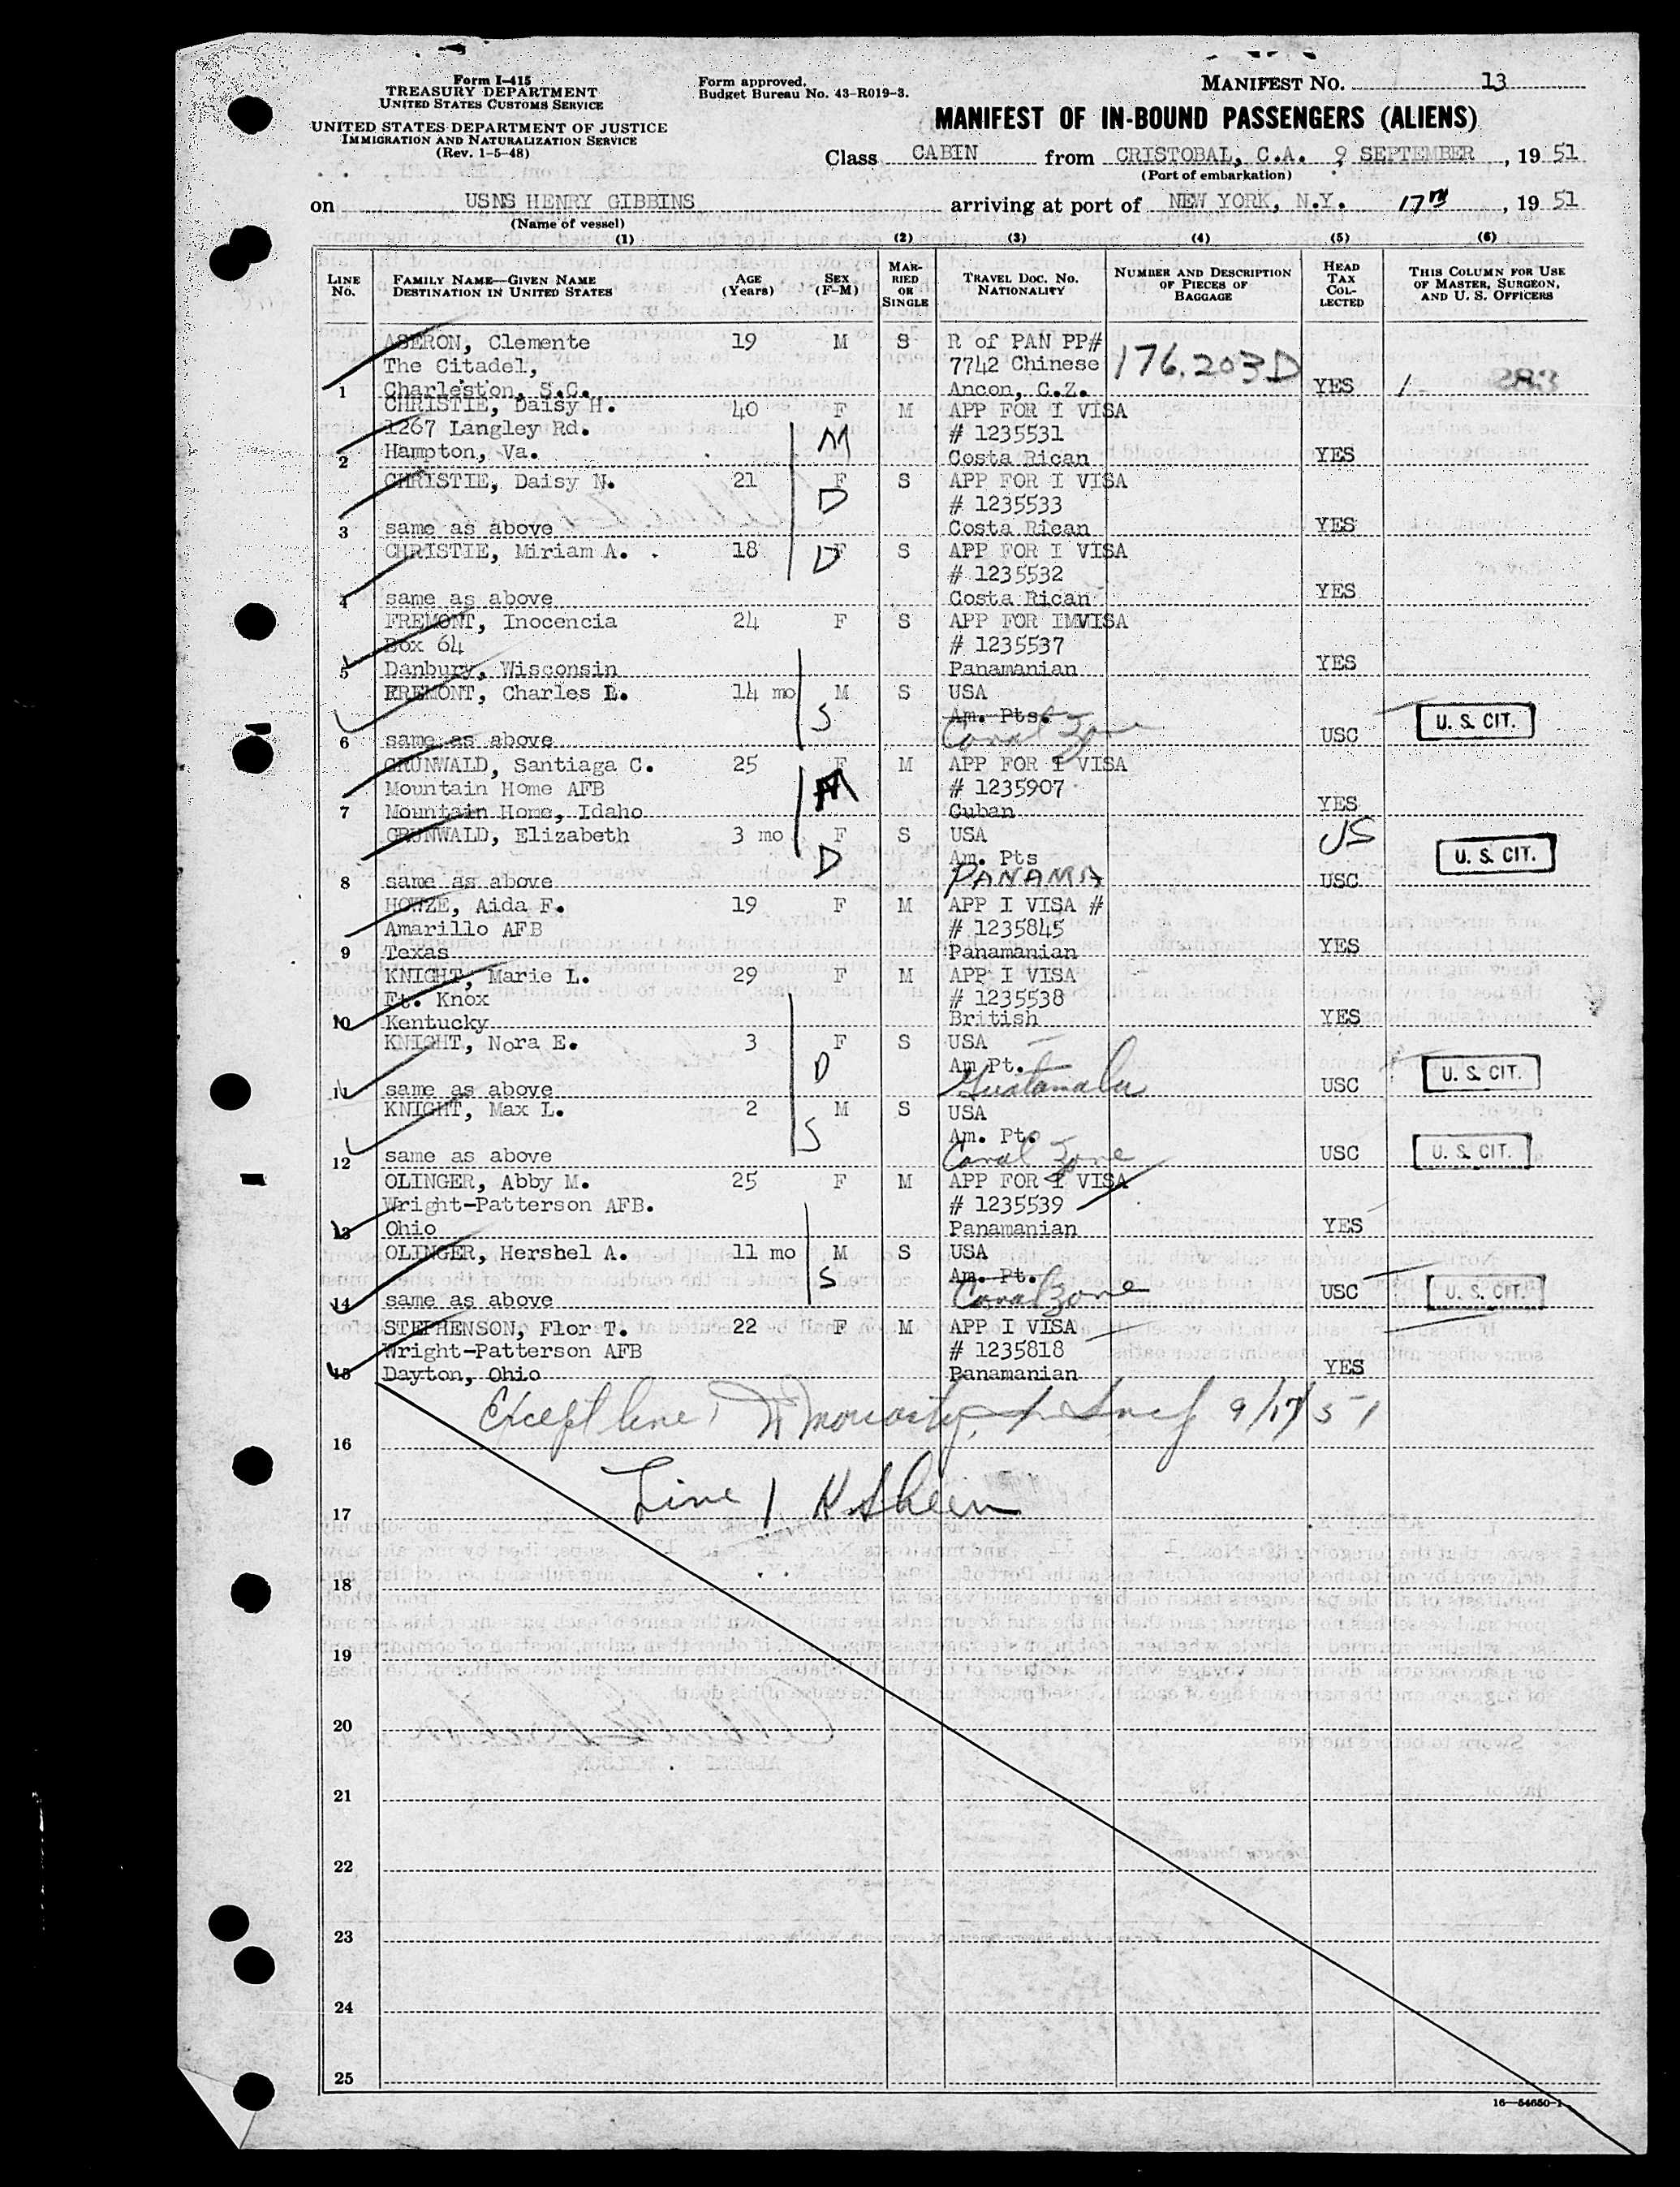 Form I-415
TREASURY DEPARTMENT
UNITED STATES CUSTOMS SERVICE
UNITED STATES DEPARTMENT OF JUSTICE
IMMIGRATION AND NATURALIZATION SERVICE
(Rev. 1-5-48)
Form approved.
Budget Bureau No. 43-R019-3.
MANIFEST NO. 13
MANIFEST OF IN-BOUND PASSENGERS (ALIENS)
Class CABIN from CRISTOBAL, C.A. 9 SEPTEMBER, 19 51
(Port of embarkation)
on USNS HENRY GIBBINS arriving at port of NEW YORK, N.Y. 17th, 19 51
(Name of vessel)
(1) (2) (3) (4) (5) (6)
LINE No. FAMILY NAME—GIVEN NAME DESTINATION IN UNITED STATES AGE (Years) SEX (F-M) MARRIED OR SINGLE TRAVEL DOC. NO. NATIONALITY NUMBER AND DESCRIPTION OF PIECES OF BAGGAGE HEAD TAX COLLECTED THIS COLUMN FOR USE OF MASTER, SURGEON, AND U. S. OFFICERS
ASERON, Clemente 19 M S R of PAN PP#
The Citadel, 7742 Chinese 176,203D
1 Charleston, S.C. Ancon, C.Z. YES
CHRISTIE, Daisy H. 40 F M APP FOR I VISA
1267 Langley Rd. M # 1235531
2 Hampton, Va. Costa Rican YES
CHRISTIE, Daisy N. 21 F S APP FOR I VISA
D # 1235533
3 same as above Costa Rican YES
CHRISTIE, Miriam A. 18 F D S APP FOR I VISA
# 1235532
4 same as above Costa Rican YES
FREMONT, Inocencia 24 F S APP FOR IMVISA
Box 64 # 1235537
5 Danbury, Wisconsin Panamanian YES
FREMONT, Charles L. 14 mo M S USA
S Am. Pts. U. S. CIT.
6 same as above Canal Zone USC
GRUNWALD, Santiaga C. 25 F M APP FOR I VISA
Mountain Home AFB M # 1235907
7 Mountain Home, Idaho Cuban YES
GRUNWALD, Elizabeth 3 mo F S USA US
D Am. Pts U. S. CIT.
8 same as above PANAMA USC
HOWZE, Aida F. 19 F M APP I VISA #
Amarillo AFB # 1235845
9 Texas Panamanian YES
KNIGHT, Marie L. 29 F M APP I VISA
Ft. Knox # 1235538
10 Kentucky British YES
KNIGHT, Nora E. 3 F S USA
D Am Pt. U. S. CIT.
11 same as above Guatamala USC
KNIGHT, Max L. 2 M S USA
S Am. Pt. U. S. CIT.
12 same as above Canal Zone USC
OLINGER, Abby M. 25 F M APP FOR I VISA
Wright-Patterson AFB. # 1235539
13 Ohio Panamanian YES
OLINGER, Hershel A. 11 mo M S USA
S Am. Pt. U. S. CIT.
14 same as above Canal Zone USC
STEPHENSON, Flor T. 22 F M APP I VISA
Wright-Patterson AFB # 1235818
15 Dayton, Ohio Panamanian YES
Except line 1 9/17/51
16
Line 1
17
18
19
20
21
22
23
24
25
16—54650-1